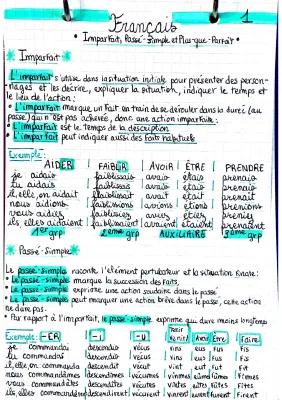 1
Français
• Imparfait, Passé-Simple et Plus-que-Parfait •
Imparfait
• L'imparfait s'utilise dans la situation initiale pour présenter des person-
nages et les décrire, expliquer la situation, indiquer le temps et
le lieu de l'action;
• L'imparfait marque un fait en train de se dérouler dans la durée (au
passé) qui n'est pas achevée, donc une action imparfaite;
• L'imparfait est le temps de la description
• L'imparfait peut indiquer aussi des faits habituels
Exemple:
AIDER | FAIBLIR | AVOIR | ÊTRE | PRENDRE
je aidais | faiblissais | avais | étais | prenais
tu aidais | faiblissais | avais | étais | prenais
il, elle, on aidait | faiblissait | avait | était | prenait
nous aidions | faiblissions | avions | étions | prenions
vous aidiez | faiblissiez | aviez | étiez | preniez
ils elles aidaient | faiblissaient | avaient | étaient | prenaient
1er grp | 2ème grp | AUXILIAIRE | 3ème grp
Passé-Simple
• Le passé-simple raconte l'élément perturbateur et la situation finale.
• Le passé-simple marque la succession des faits,
• Le passé-simple exprime une action soudaine dans le passé
• Le passé-simple peut marquer une action brève dans le passé, cette action
ne dure pas.
• Par rapport à l'imparfait, le passé-simple exprime qui dure moins longtemps
Exemple: -ER | -i | -U | Venir | Avoir | Être | Faire
je commandai | descendis | vécus | vins | eus | fus | fis
tu commandas | descendis | vécus | vins | eus | fus | fis
il, elle, on commanda | descendit | vécut | vint | eut | fut | fit
nous commandâmes | descendîmes | vécûmes | vînmes | eûmes | fûmes | fîmes
vous commandâtes | descendîtes | vécûtes | vîntes | eûtes | fûtes | fîtes
ils elles commandèrent | descendirent | vécurent | vinrent | eurent | furent | firent